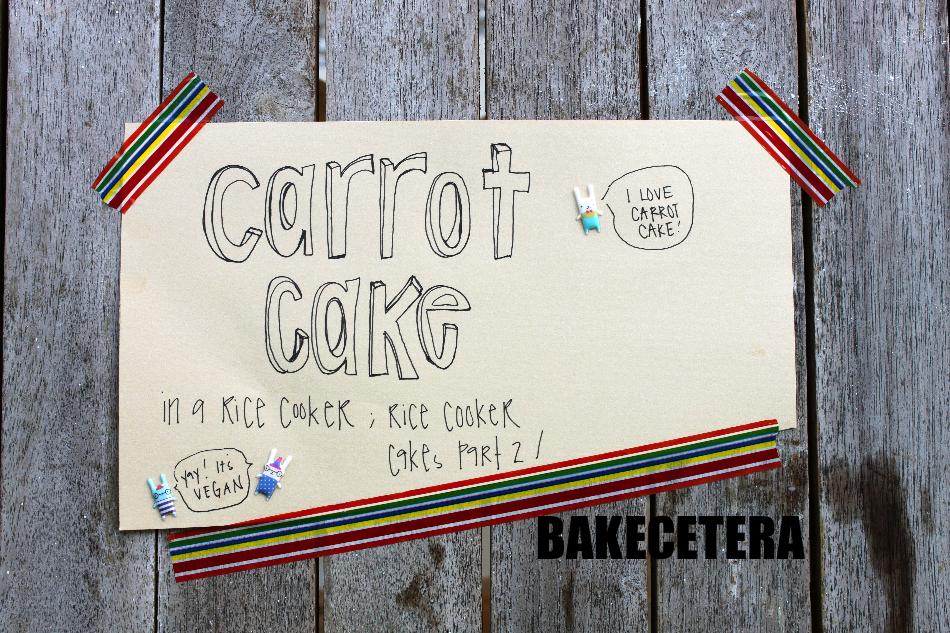 carrot
cake
I LOVE
CARROT
CAKE!
in a RICE COOKER ; RICE COOKER
cakes part 2 !
yay! Its
VEGAN
BAKECETERA